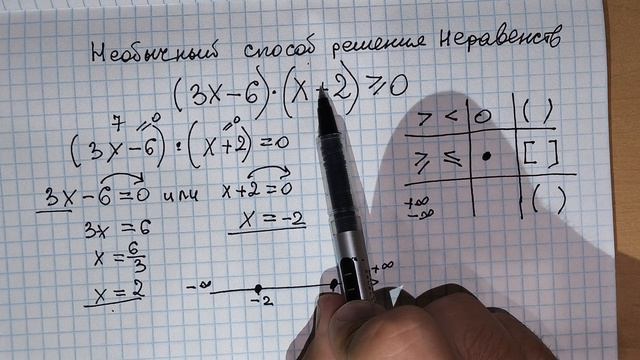 Необычный способ решения неравенств
(3x-6)·(x+2)⩾0
7 //=0 //=0
(3x-6)·(x+2)=0
3x-6=0 или x+2=0
3x=6
x=-2
x=6/3
x=2
> < ○ ( )
⩾ ⩽ • [ ]
+∞
-∞ ( )
-∞ -2 +∞